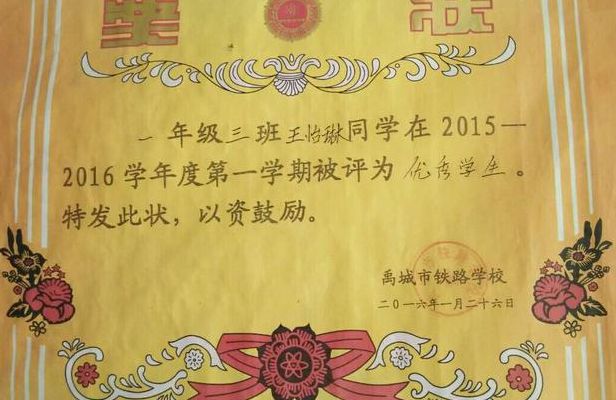 奖 状
一年级三班王怡琳同学在2015—
2016学年度第一学期被评为优秀学生。
特发此状，以资鼓励。
禹城市铁路学校
二〇一六年一月二十六日